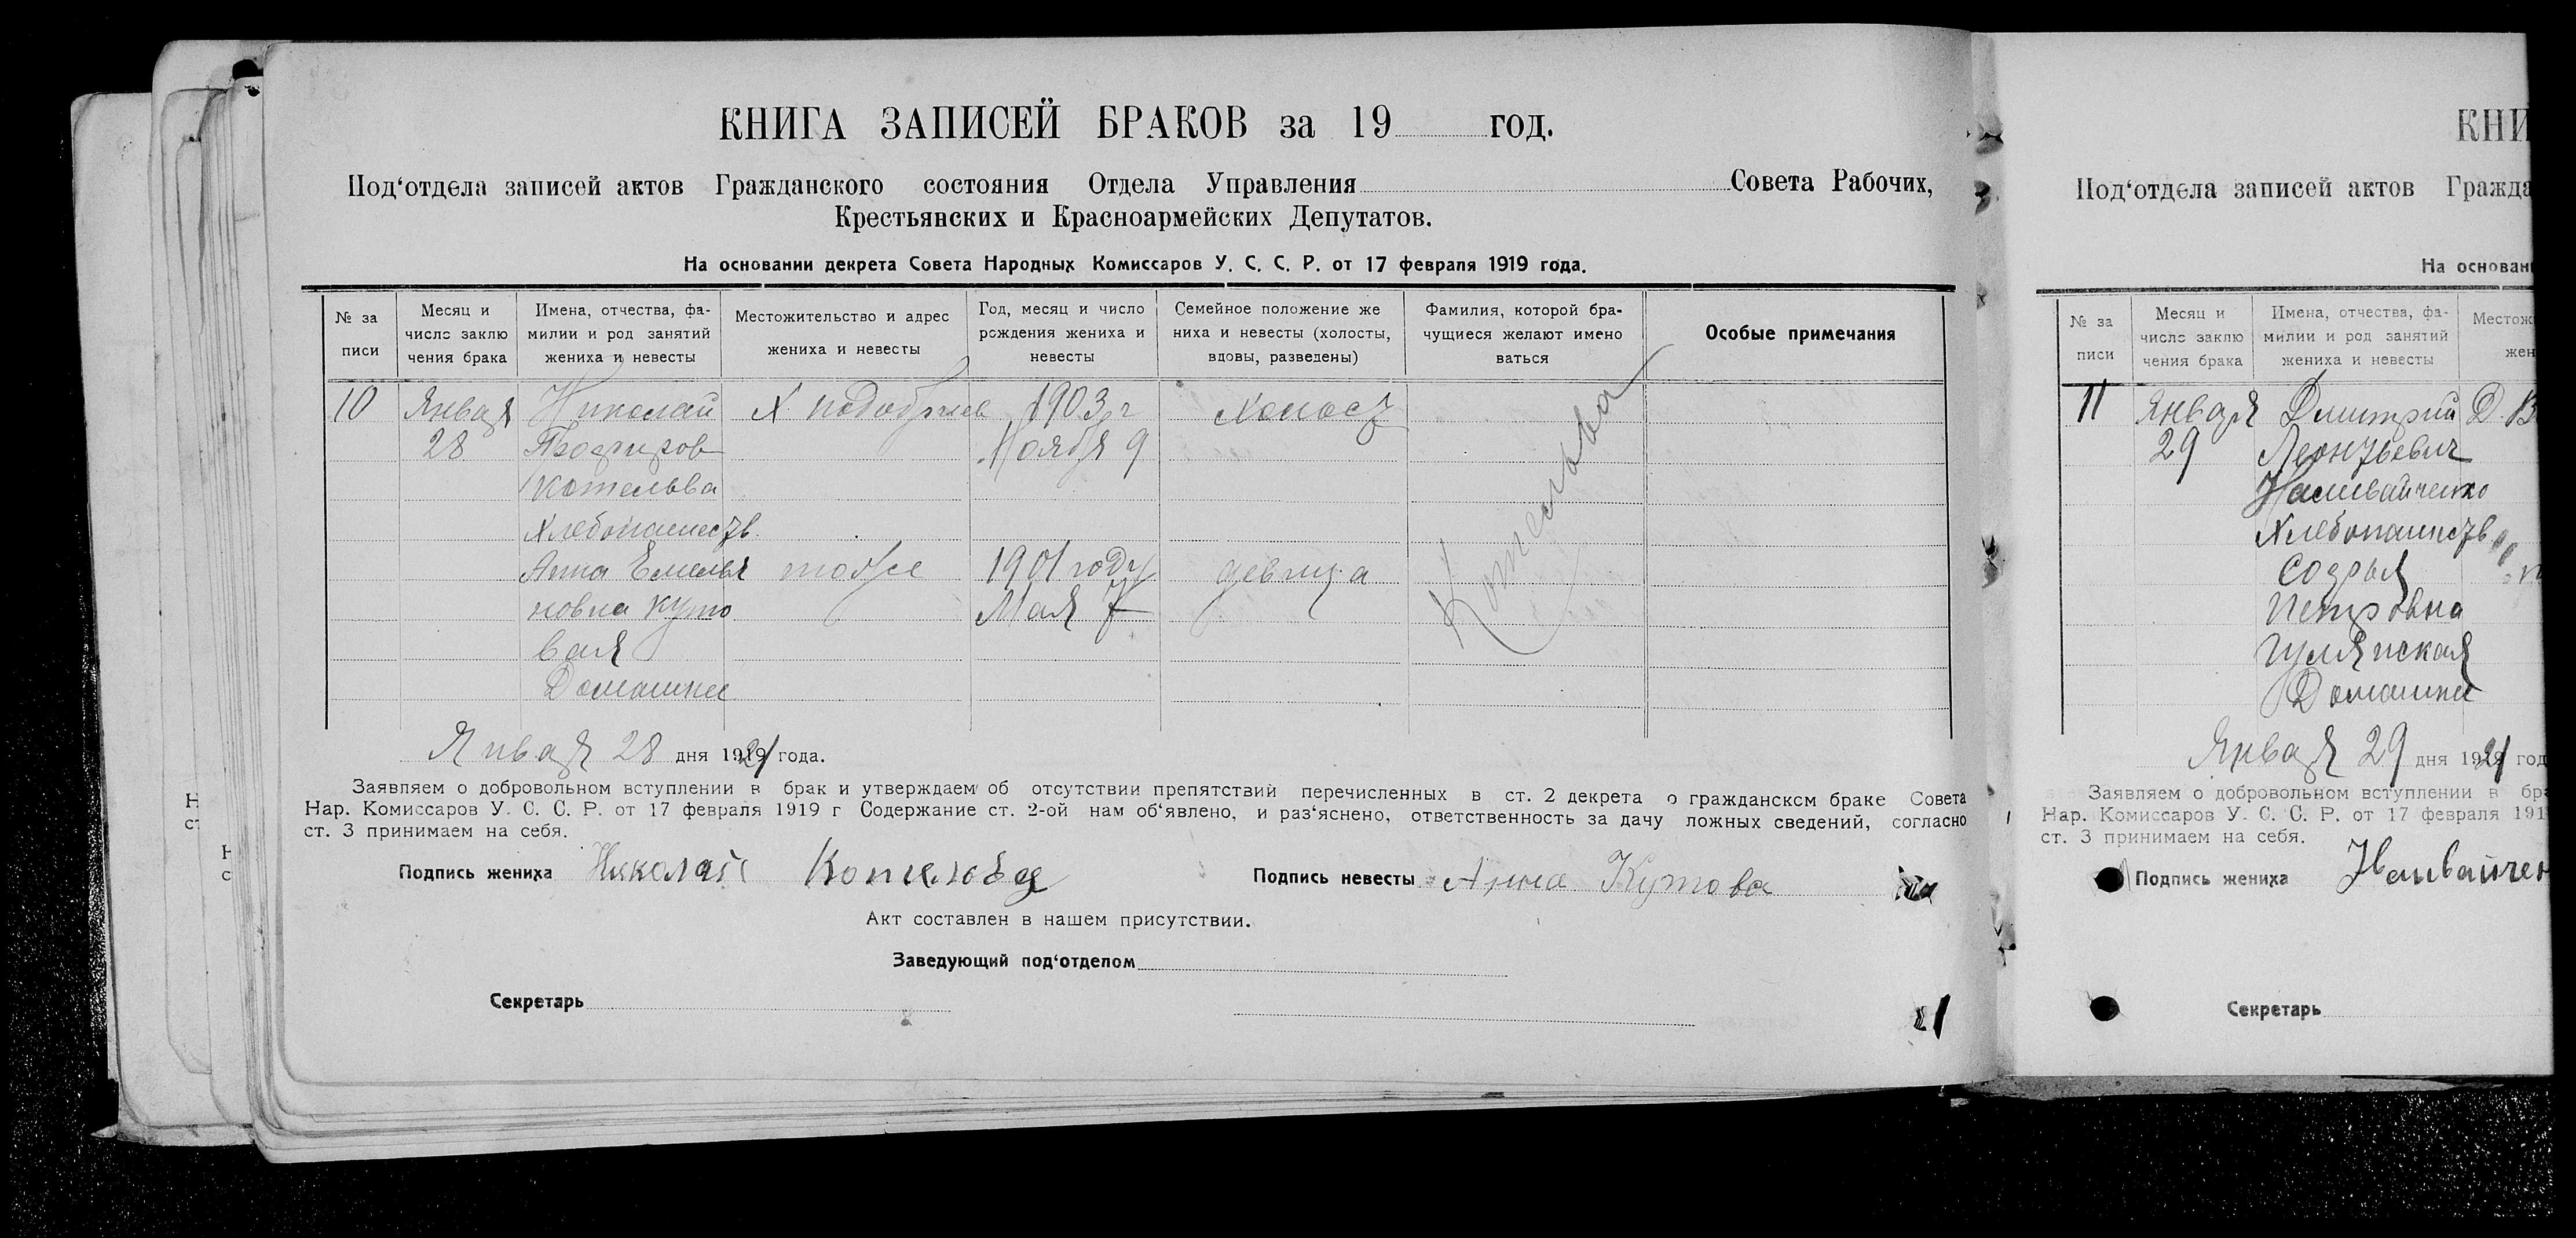 КНИГА ЗАПИСЕЙ БРАКОВ за 19 год.
Под‘отдела записей актов Гражданского состояния Отдела Управления Совета Рабочих,
Крестьянских и Красноармейских Депутатов.
На основании декрета Совета Народных Комиссаров У. С. С. Р. от 17 февраля 1919 года.
№ за
писи
Месяц и
число заклю
чения брака
Имена, отчества, фа-
милии и род занятий
жениха и невесты
Местожительство и адрес
жениха и невесты
Год, месяц и число
рождения жениха и
невесты
Семейное положение же
ниха и невесты (холосты,
вдовы, разведены)
Фамилия, которой бра-
чущиеся желают имено
ваться
Особые примечания
10 Января Николай Х. 1903 г Холост
28 Ноября 9
Котельва
Хлебопашеств.
Анна Емелья тоже 1901 году девица
новна Куто Мая 7
вая
Домашнее
Котельва
Января 28 дня 1921 года.
Заявляем о добровольном вступлении в брак и утверждаем об отсутствии препятствий перечисленных в ст. 2 декрета о гражданском браке Совета
Нар. Комиссаров У. С. С. Р. от 17 февраля 1919 г Содержание ст. 2-ой нам об‘явлено, и раз‘яснено, ответственность за дачу ложных сведений, согласно
ст. 3 принимаем на себя.
Подпись жениха Николай Котельва Подпись невесты Анна Кутова
Акт составлен в нашем присутствии.
Заведующий под‘отделом
Секретарь
КНИ
Под‘отдела записей актов Гражда
На основан
№ за
писи
Месяц и
число заклю
чения брака
Имена, отчества, фа-
милии и род занятий
жениха и невесты
Местож
жен
11 Января Дмитрий Д. В
29 Леонтьевич
Наливайченко
Хлебопашеств
Софья
Петровна
Гулянская
Домашнее
Января 29 дня 1921 год
Заявляем о добровольном вступлении в бра
Нар. Комиссаров У. С. С. Р. от 17 февраля 191
ст. 3 принимаем на себя.
Подпись жениха Наливайчен
Секретарь